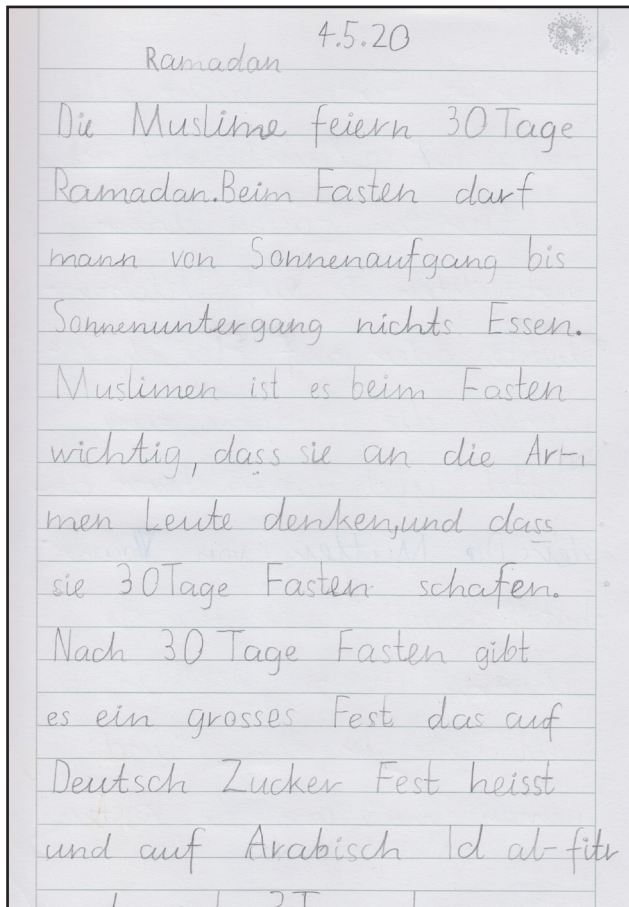 4.5.20
Ramadan
Die Muslime feiern 30 Tage
Ramadan. Beim Fasten darf
mann von Sonnenaufgang bis
Sonnenuntergang nichts Essen.
Muslimen ist es beim Fasten
wichtig, dass sie an die Ar-
men Leute denken, und dass
sie 30 Tage Fasten schafen.
Nach 30 Tage Fasten gibt
es ein grosses Fest das auf
Deutsch Zucker Fest heisst
und auf Arabisch Id al-fitr